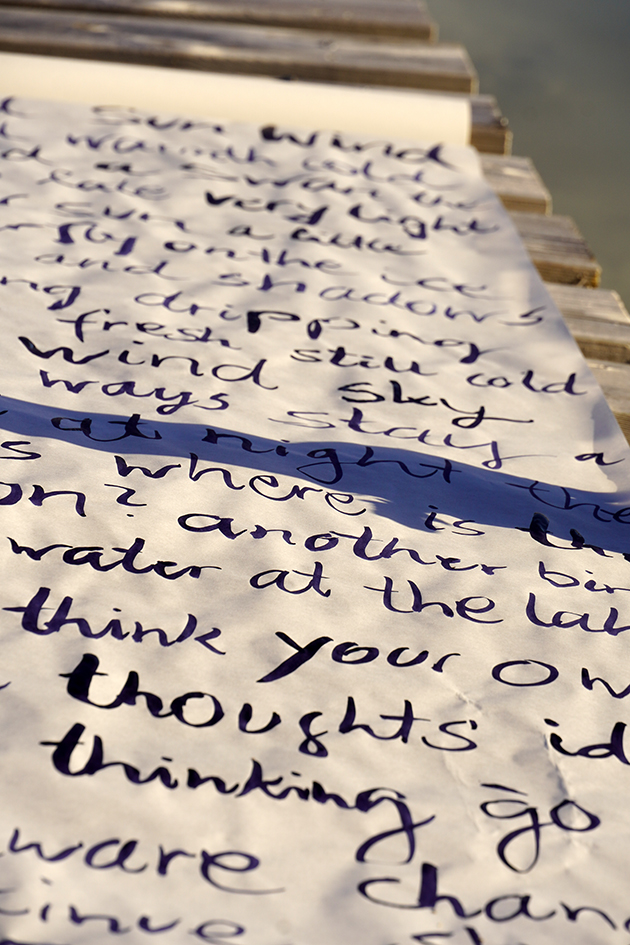 sun wind
warmth cold
a swan the
very light
sun a
fly on the ice
and shadows
ng dripping
fresh still cold
wind sky
ways stay a
at night the
s where is the
on? another bir
water at the lak
think your ow
thoughts id
thinking go
ware chan
tinue